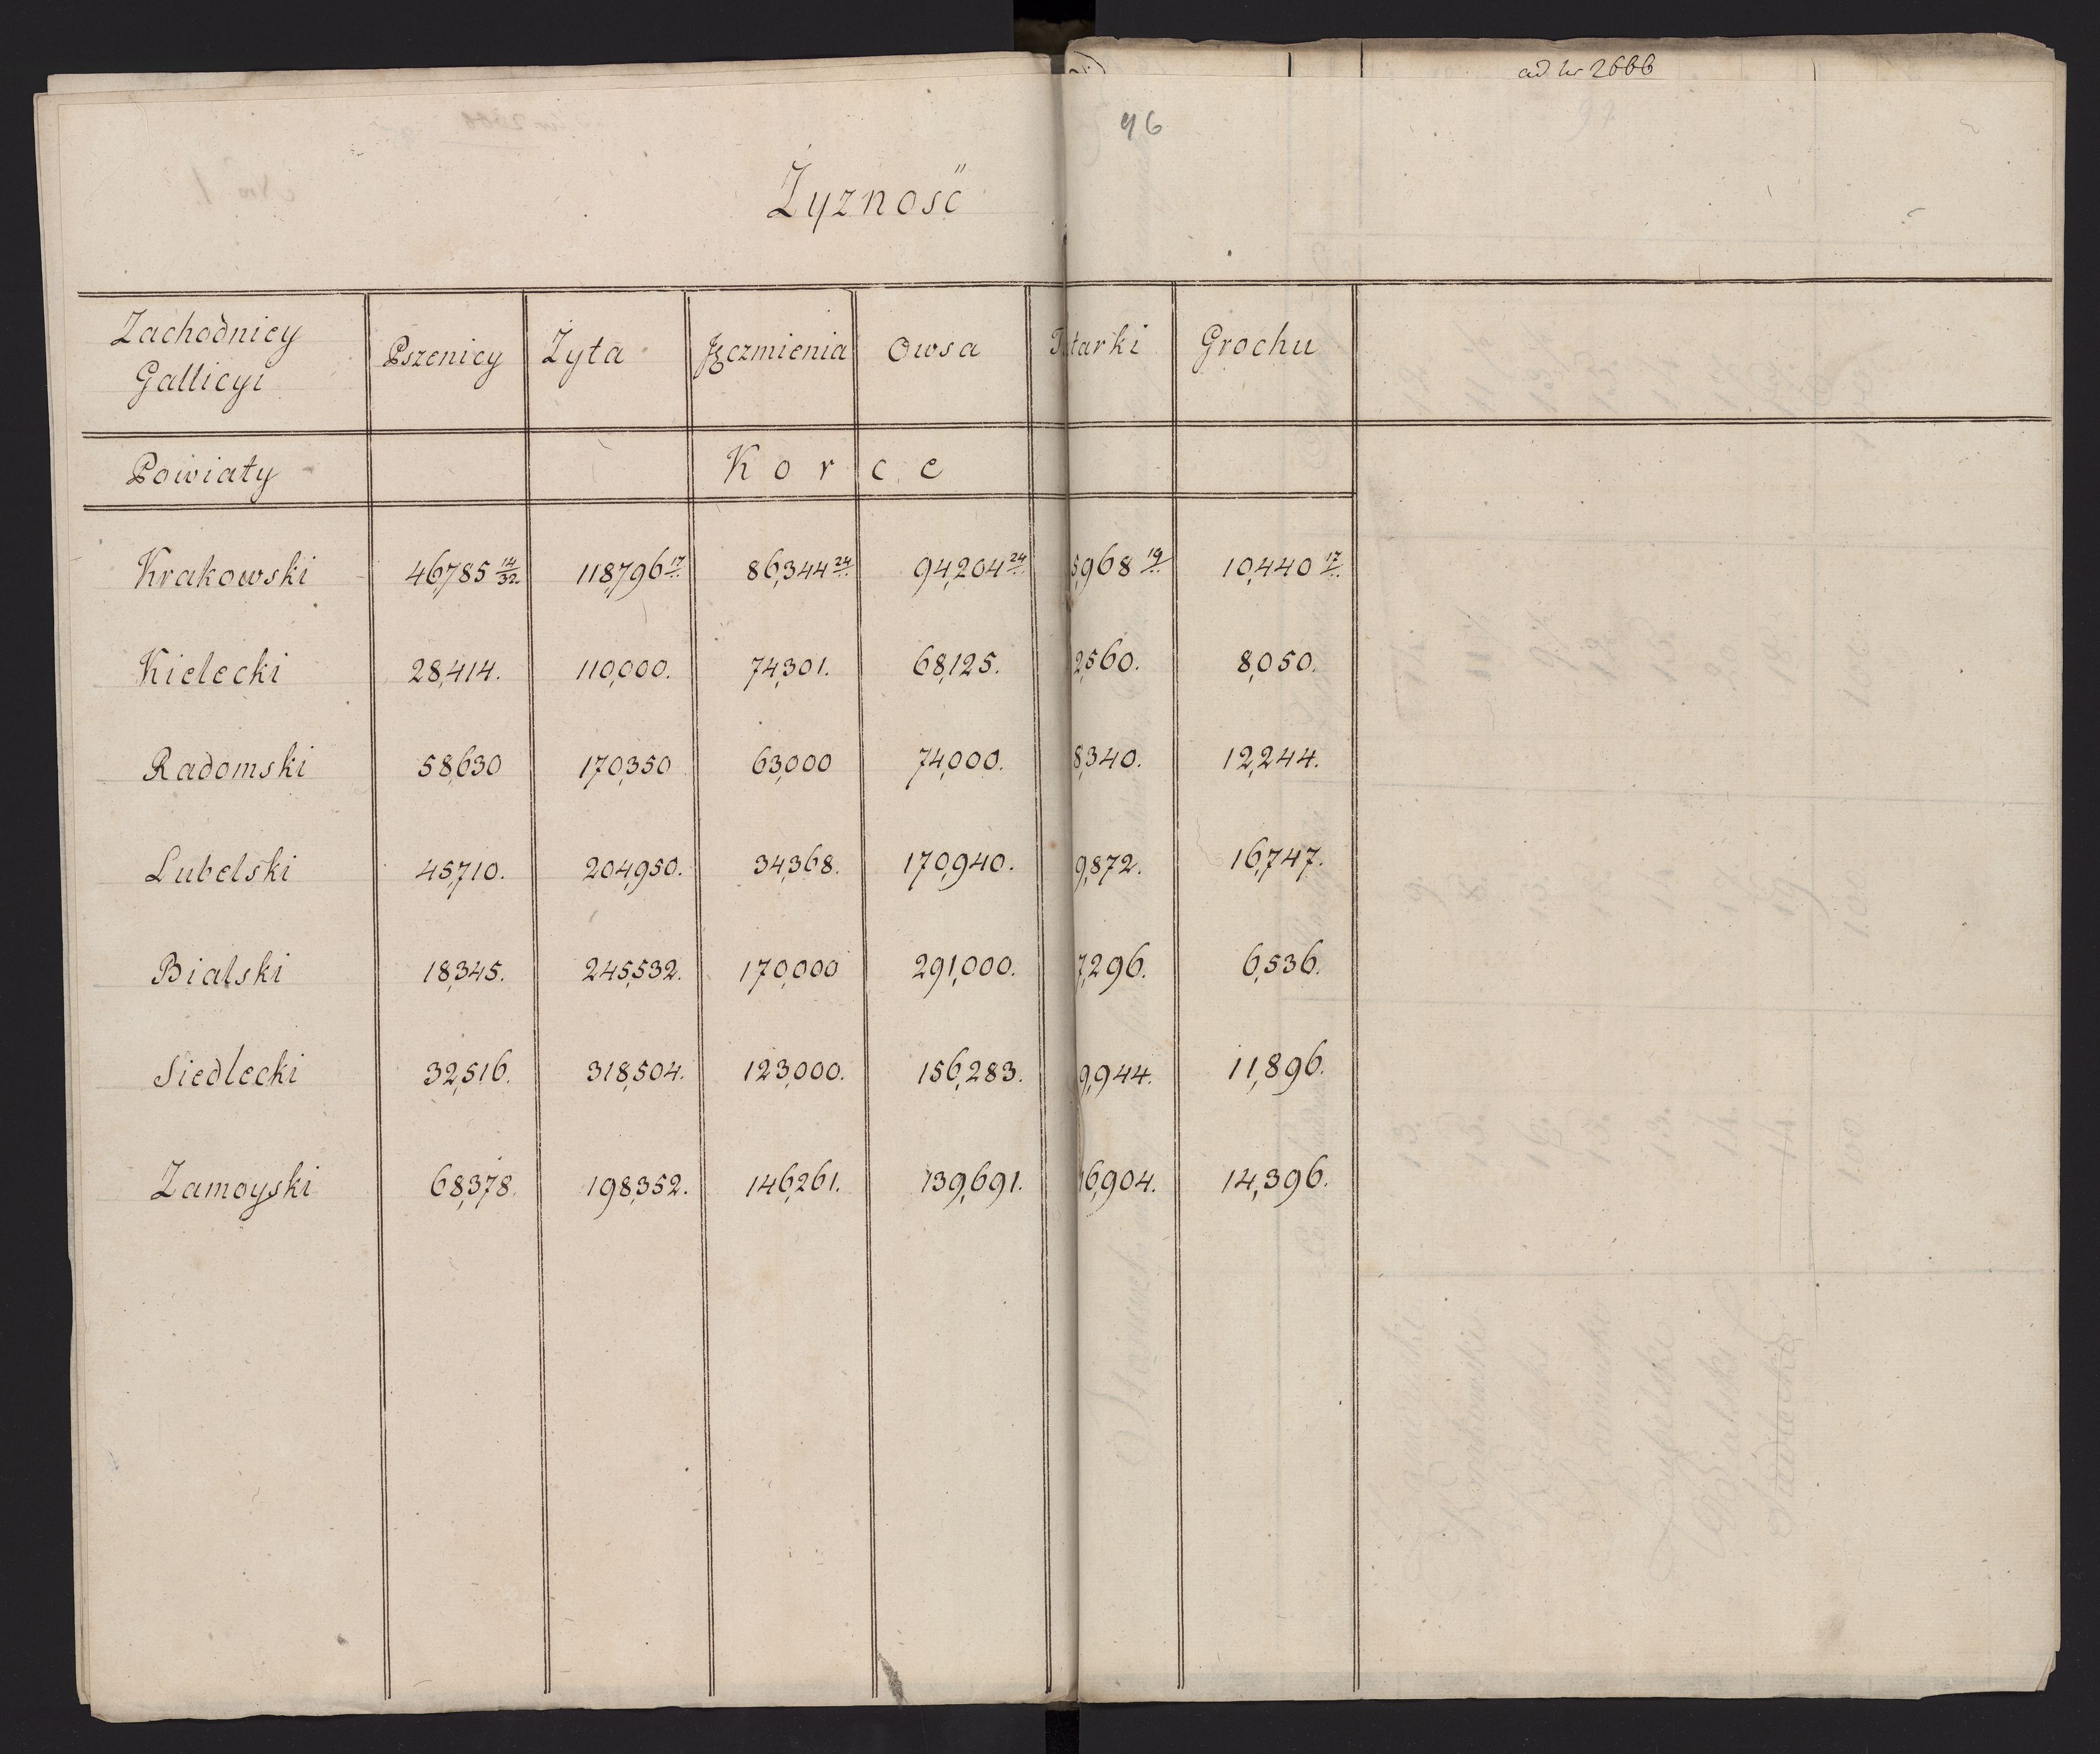 ad nr 2666
96
Żyzność
Zachodnicy
Gallicyi
Pszenicy Żyta Jęczmienia Owsa Tatarki Grochu
Powiaty Korce
Krakowski 46,785 14/32 118,796 17 86,344 24 94,204 24 5,968 19 10,440 17
Kielecki 28,414. 110,000. 74,301. 68,125. 2,560. 8,050.
Radomski 58,630 170,350 63,000 74,000. 8,340. 12,244.
Lubelski 45,710. 204,950. 34,368. 170,940. 9,872. 16,747.
Bialski 18,345. 245,532. 170,000 291,000. 7,296. 6,536.
Siedlecki 32,516. 318,504. 123,000. 156,283. 9,944. 11,896.
Zamoyski 68,378. 198,352. 146,261. 139,691. 16,904. 14,396.